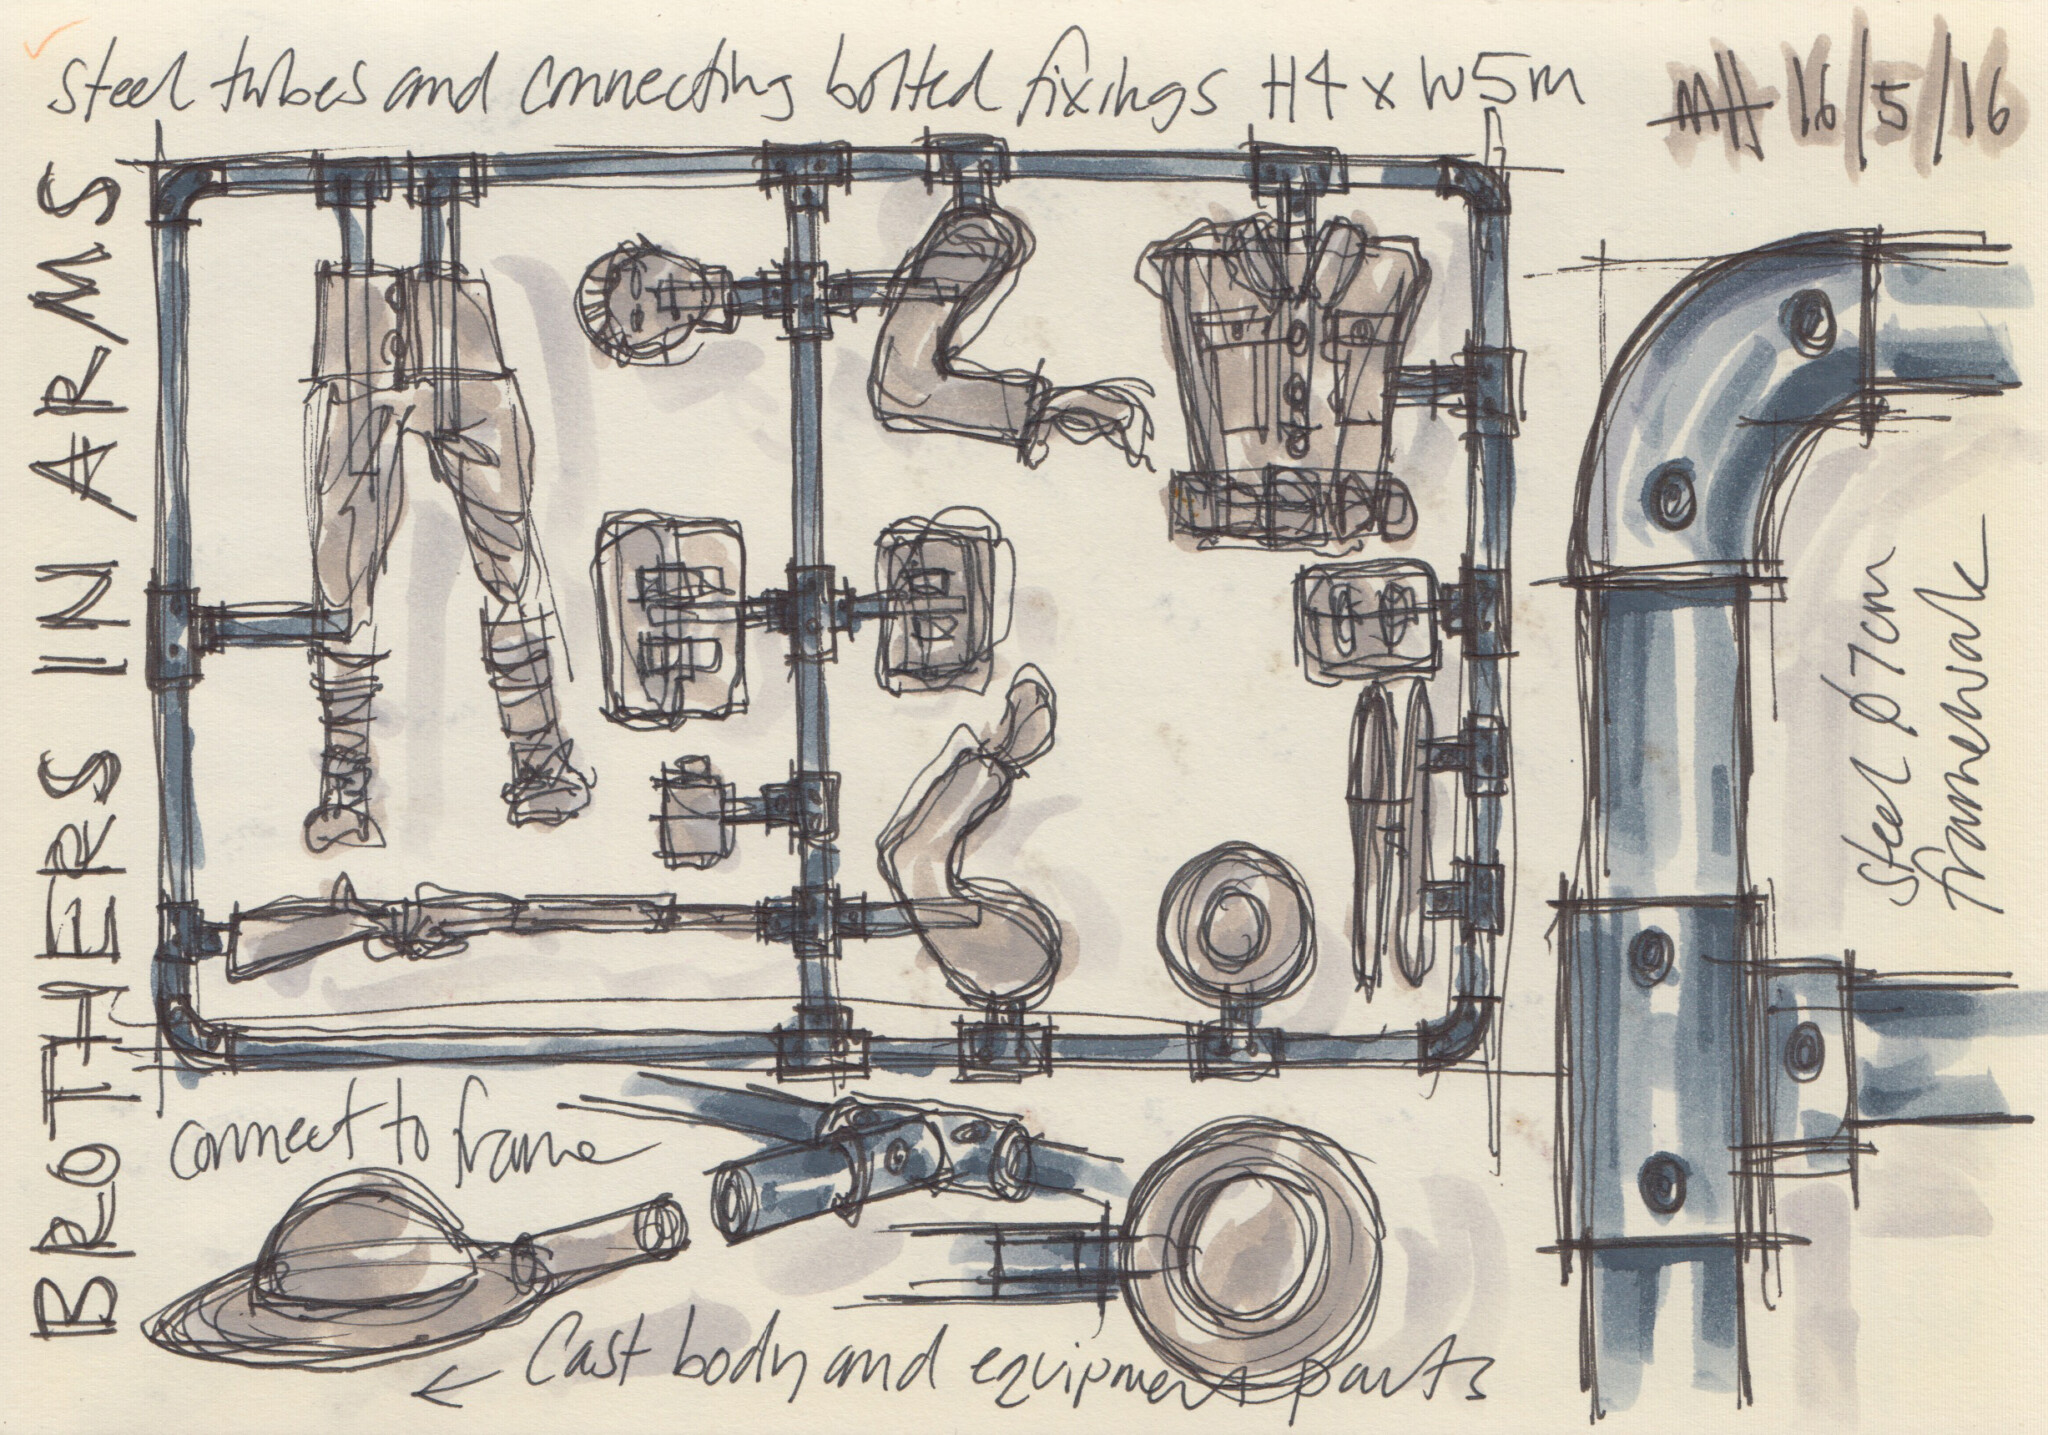 steel tubes and connecting bolted fixings H4 x W5m
MH 16/5/16
BROTHERS IN ARMS
steel Ø7cm
framework
connect to frame
← Cast body and equipment parts